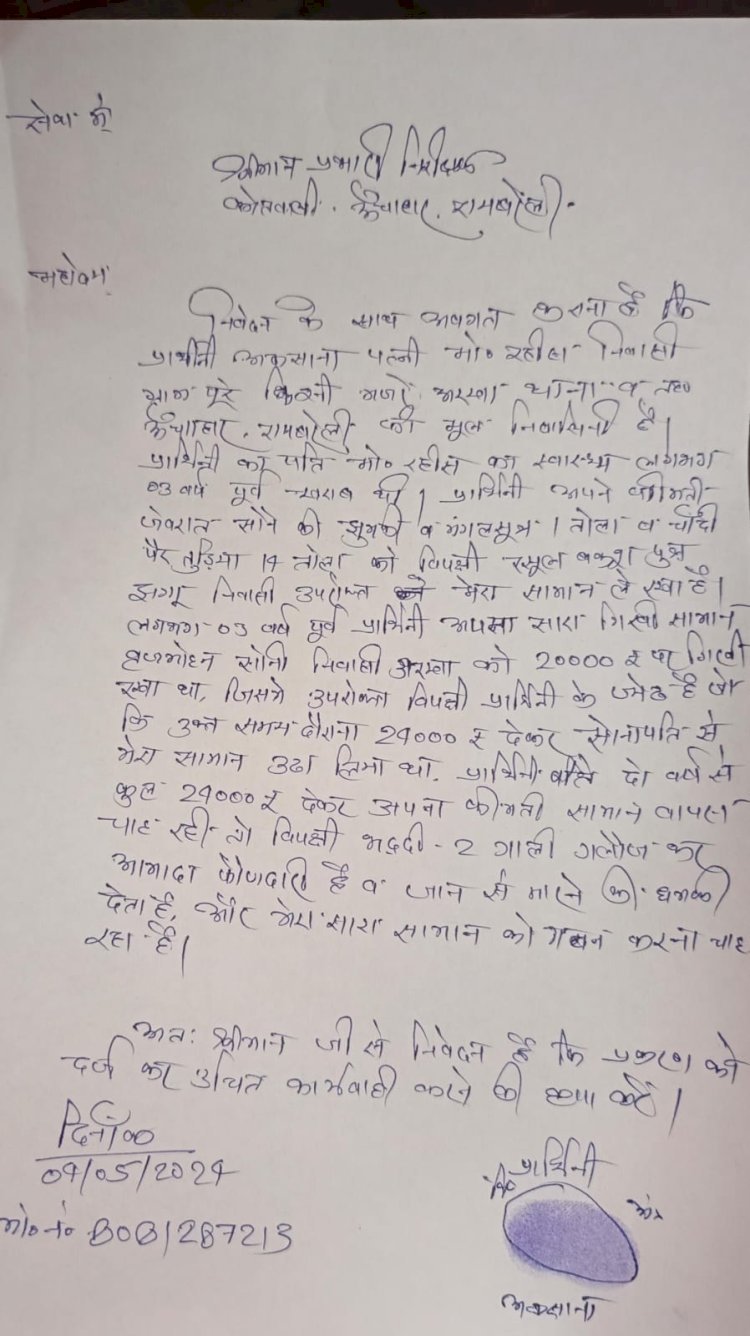 सेवा में
श्रीमान प्रभारी निरीक्षक
कोतवाली. ऊँचाहार, रायबरेली.
महोदय,
निवेदन के साथ अवगत कराना है कि
प्रार्थिनी अफसाना पत्नी मो० रहीस निवासी
ग्राम पूरे किल्ली मजरे अरखा थाना व तह०
ऊँचाहार, रायबरेली की मूल निवासिनी है।
प्रार्थिनी का पति मो० रहीस का स्वास्थ्य लगभग
03 वर्ष पूर्व खराब थी। प्रार्थिनी अपने कीमती
जेवरात सोने की झुमकी व मंगलसूत्र 1 तोला व चाँदी
पैर तुड़िया 14 तोला को विपक्षी रसूल बक्श पुत्र
झगरू निवासी उपरोक्त ने मेरा सामान ले रखा है।
लगभग 03 वर्ष पूर्व प्रार्थिनी अपना सारा गिरवी सामान
बृजमोहन सोनी निवासी अरखा को 20000 रु पर गिरवी
रखा था, जिसमे उपरोक्त विपक्षी प्रार्थिनी के ज्येठ है जो
कि उक्त समय दौराना 24000 रु देकर सोनापति से
मेरा सामान उठा लिया था. प्रार्थिनी बीते दो वर्ष से
कुल 24000 रु देकर अपना कीमती सामान वापस
चाह रही तो विपक्षी भद्दी-2 गाली गलौज कर
आमादा फौजदारी है व जान से मारने की धमकी
देता है, और मेरा सारा सामान को गबन करना चाह
रहा है।
अतः श्रीमान जी से निवेदन है कि प्रकरण को
दर्ज कर उचित कार्यवाही करने की कृपा करें।
दिनांक
04/05/2024
प्रार्थिनी
नि०
अं०
मो० नं० 8081287213
अफसाना